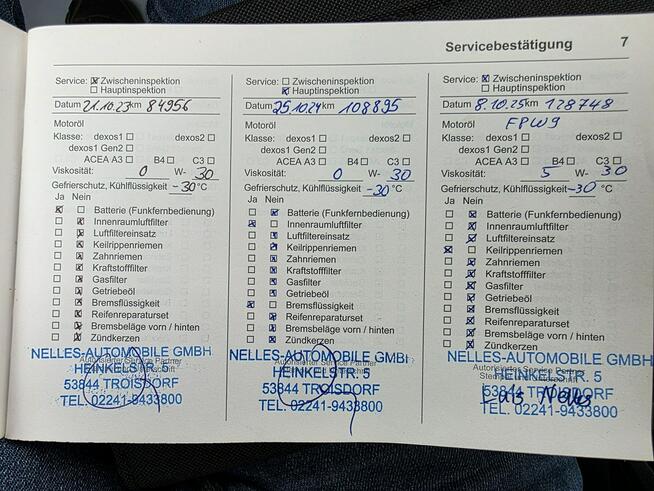 Servicebestätigung 7
Service: ☒ Zwischeninspektion
☐ Hauptinspektion
Datum 21.10.23 km 84956
Motoröl
Klasse: dexos1 ☐ dexos2 ☐
dexos1 Gen2 ☐
ACEA A3 ☐ B4 ☐ C3 ☐
Viskosität: 0 W- 30
Gefrierschutz, Kühlflüssigkeit -30 °C
Ja Nein
☒ ☐ Batterie (Funkfernbedienung)
☐ ☒ Innenraumluftfilter
☐ ☒ Luftfiltereinsatz
☐ ☒ Keilrippenriemen
☐ ☒ Zahnriemen
☐ ☒ Kraftstofffilter
☐ ☒ Gasfilter
☐ ☒ Getriebeöl
☐ ☒ Bremsflüssigkeit
☐ ☒ Reifenreparaturset
☐ ☒ Bremsbeläge vorn / hinten
☐ ☒ Zündkerzen
Autorisierter Service Partner
NELLES-AUTOMOBILE GMBH
HEINKELSTR. 5
53844 TROISDORF
TEL. 02241-9433800
Service: ☐ Zwischeninspektion
☒ Hauptinspektion
Datum 25.10.24 km 108895
Motoröl
Klasse: dexos1 ☐ dexos2 ☐
dexos1 Gen2 ☐
ACEA A3 ☐ B4 ☐ C3 ☐
Viskosität: 0 W- 30
Gefrierschutz, Kühlflüssigkeit -30 °C
Ja Nein
☐ ☒ Batterie (Funkfernbedienung)
☒ ☐ Innenraumluftfilter
☐ ☒ Luftfiltereinsatz
☐ ☒ Keilrippenriemen
☐ ☒ Zahnriemen
☐ ☒ Kraftstofffilter
☐ ☒ Gasfilter
☐ ☒ Getriebeöl
☒ ☐ Bremsflüssigkeit
☐ ☒ Reifenreparaturset
☐ ☒ Bremsbeläge vorn / hinten
☐ ☒ Zündkerzen
Autorisierter Service Partner
NELLES-AUTOMOBILE GMBH
HEINKELSTR. 5
53844 TROISDORF
TEL. 02241-9433800
Service: ☒ Zwischeninspektion
☐ Hauptinspektion
Datum 8.10.25 km 128748
Motoröl FPW9
Klasse: dexos1 ☐ dexos2 ☐
dexos1 Gen2 ☐
ACEA A3 ☐ B4 ☐ C3 ☐
Viskosität: 5 W- 30
Gefrierschutz, Kühlflüssigkeit -30 °C
Ja Nein
☐ ☒ Batterie (Funkfernbedienung)
☐ ☒ Innenraumluftfilter
☐ ☒ Luftfiltereinsatz
☒ ☐ Keilrippenriemen
☐ ☒ Zahnriemen
☐ ☒ Kraftstofffilter
☐ ☒ Gasfilter
☐ ☒ Getriebeöl
☐ ☒ Bremsflüssigkeit
☐ ☒ Reifenreparaturset
☐ ☒ Bremsbeläge vorn / hinten
☐ ☒ Zündkerzen
NELLES-AUTOMOBILE GMBH
Autorisierter Service Partner
HEINKELSTR. 5
53844 TROISDORF
TEL. 02241-9433800